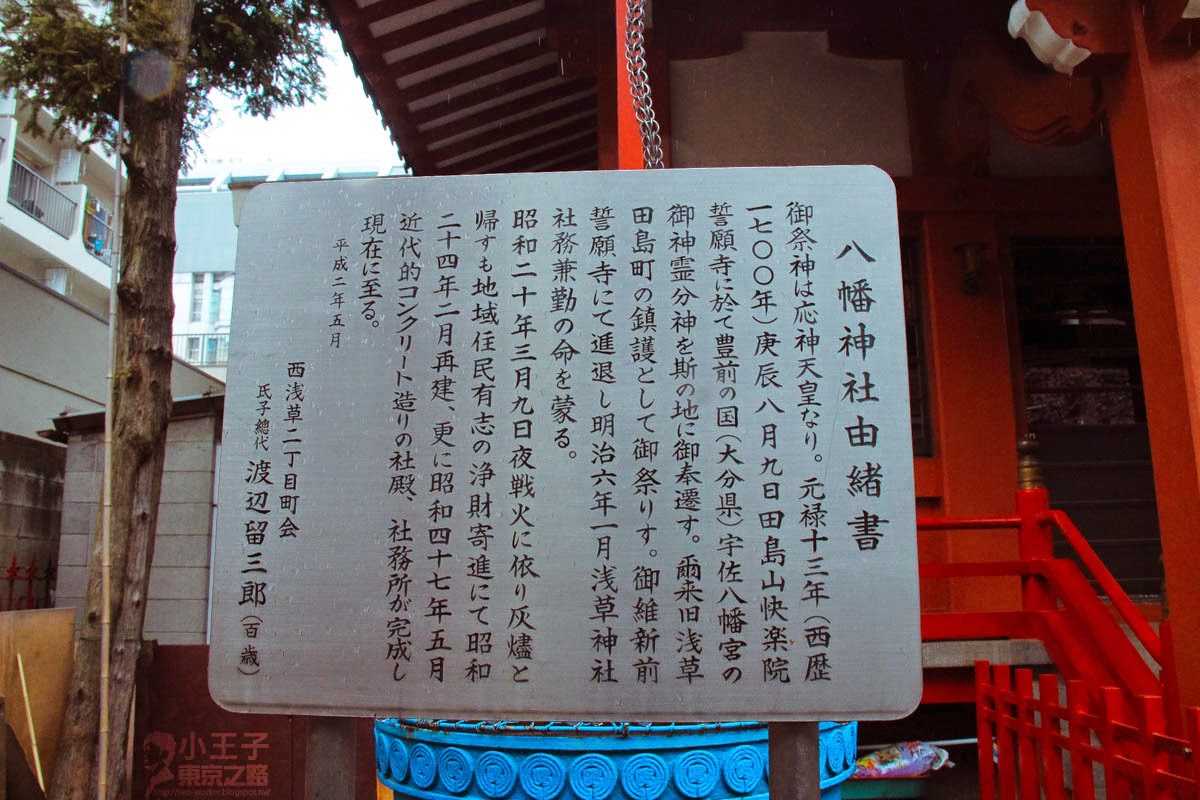 八幡神社由緒書
御祭神は応神天皇なり。元禄十三年（西歴
一七〇〇年）庚辰八月九日田島山快楽院
誓願寺に於て豊前の国（大分県）宇佐八幡宮の
御神霊分神を斯の地に御奉遷す。爾来旧浅草
田島町の鎮護として御祭りす。御維新前
誓願寺にて進退し明治六年一月浅草神社
社務兼勤の命を蒙る。
昭和二十年三月九日夜戦火に依り灰燼と
帰すも地域住民有志の浄財寄進にて昭和
二十四年二月再建、更に昭和四十七年五月
近代的コンクリート造りの社殿、社務所が完成し
現在に至る。
平成二年五月
西浅草二丁目町会
氏子總代 渡辺留三郎（百歳）
小王子
東京之路
http://seo-worker.blogspot.tw/